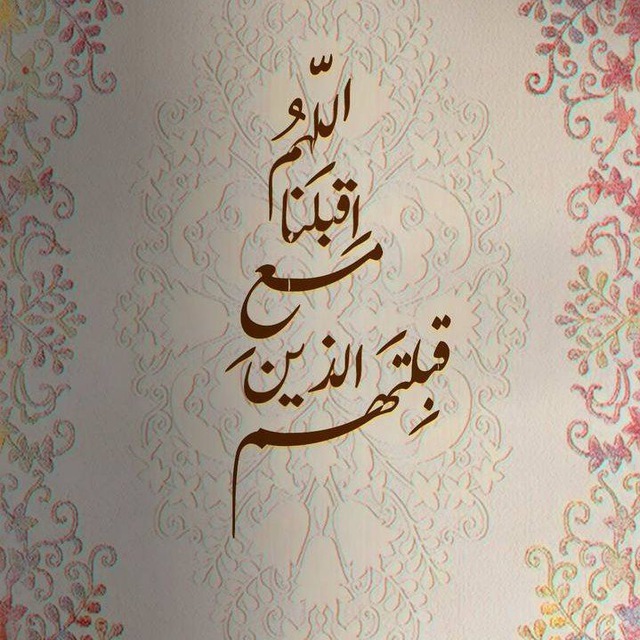 اللّهُم
اِقبلَنا
مع
الذينَ
قبِلتَهم